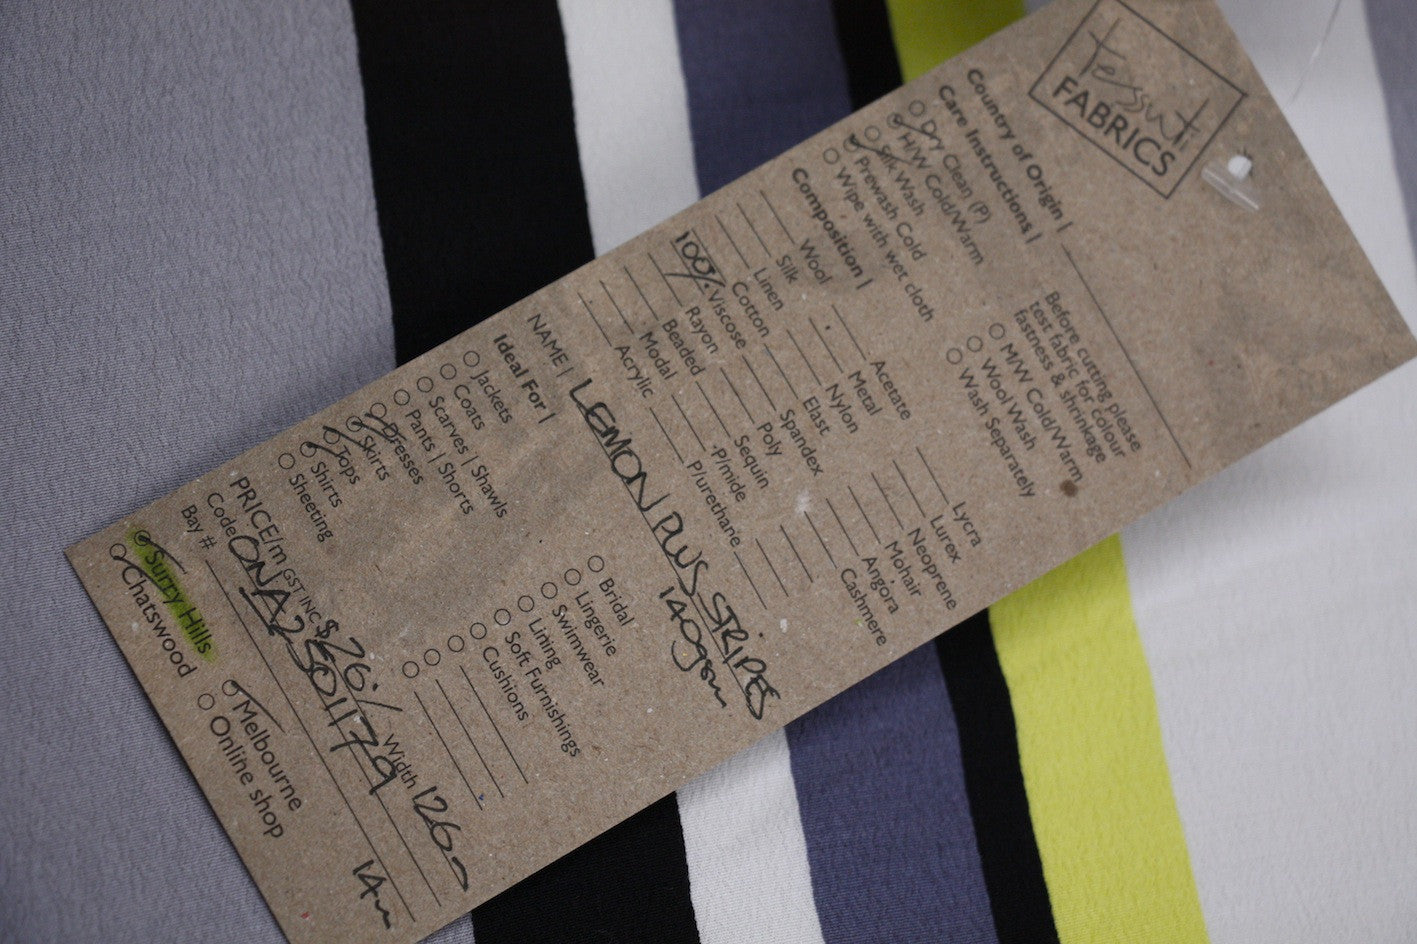 Tessuti
FABRICS
Country of Origin |
Care Instructions |
Dry Clean (P)
H/W Cold/Warm
Silk Wash
Prewash Cold
Wipe with wet cloth
Before cutting please
test fabric for colour
fastness & shrinkage
M/W Cold/Warm
Wool Wash
Wash Separately
Composition |
Wool
Silk
Linen
Cotton
100% Viscose
Rayon
Beaded
Modal
Acrylic
Acetate
Metal
Nylon
Elast
Spandex
Poly
Sequin
P/mide
P/urethane
Lycra
Lurex
Neoprene
Mohair
Angora
Cashmere
NAME | LEMON PLUS STRIPES
140gsm
Ideal For |
Jackets
Coats
Scarves | Shawls
Pants | Shorts
Dresses
Skirts
Tops
Shirts
Sheeting
Bridal
Lingerie
Swimwear
Lining
Soft Furnishings
Cushions
PRICE/m GST INC $26./ Width 126
Code
Bay #
14m
Surry Hills
Chatswood
Melbourne
Online shop